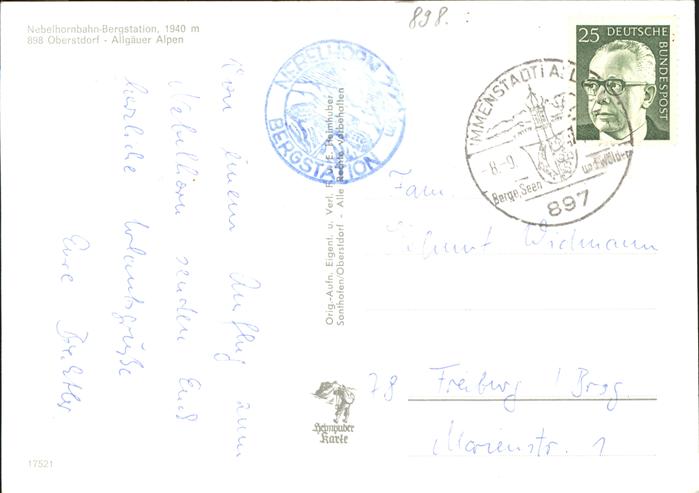 Nebelhornbahn-Bergstation, 1940 m
898 Oberstdorf - Allgäuer Alpen
898.
NEBELHORN
BERGSTATION
25 DEUTSCHE
BUNDESPOST
IMMENSTADT i. A.
8.-9.
Berge, Seen und Wälder
897
Von einem Ausflug zum
Nebelhorn senden Euch
herzliche Urlaubsgrüße
Eure
Orig.-Aufn. Eigent. u. Verl. F. u. E. Heimhuber
Sonthofen/Oberstdorf - Alle Rechte vorbehalten
Fam.
Widmann
78 Freiburg / Brsg.
Marienstr. 1
Heimhuber
Karte
17521